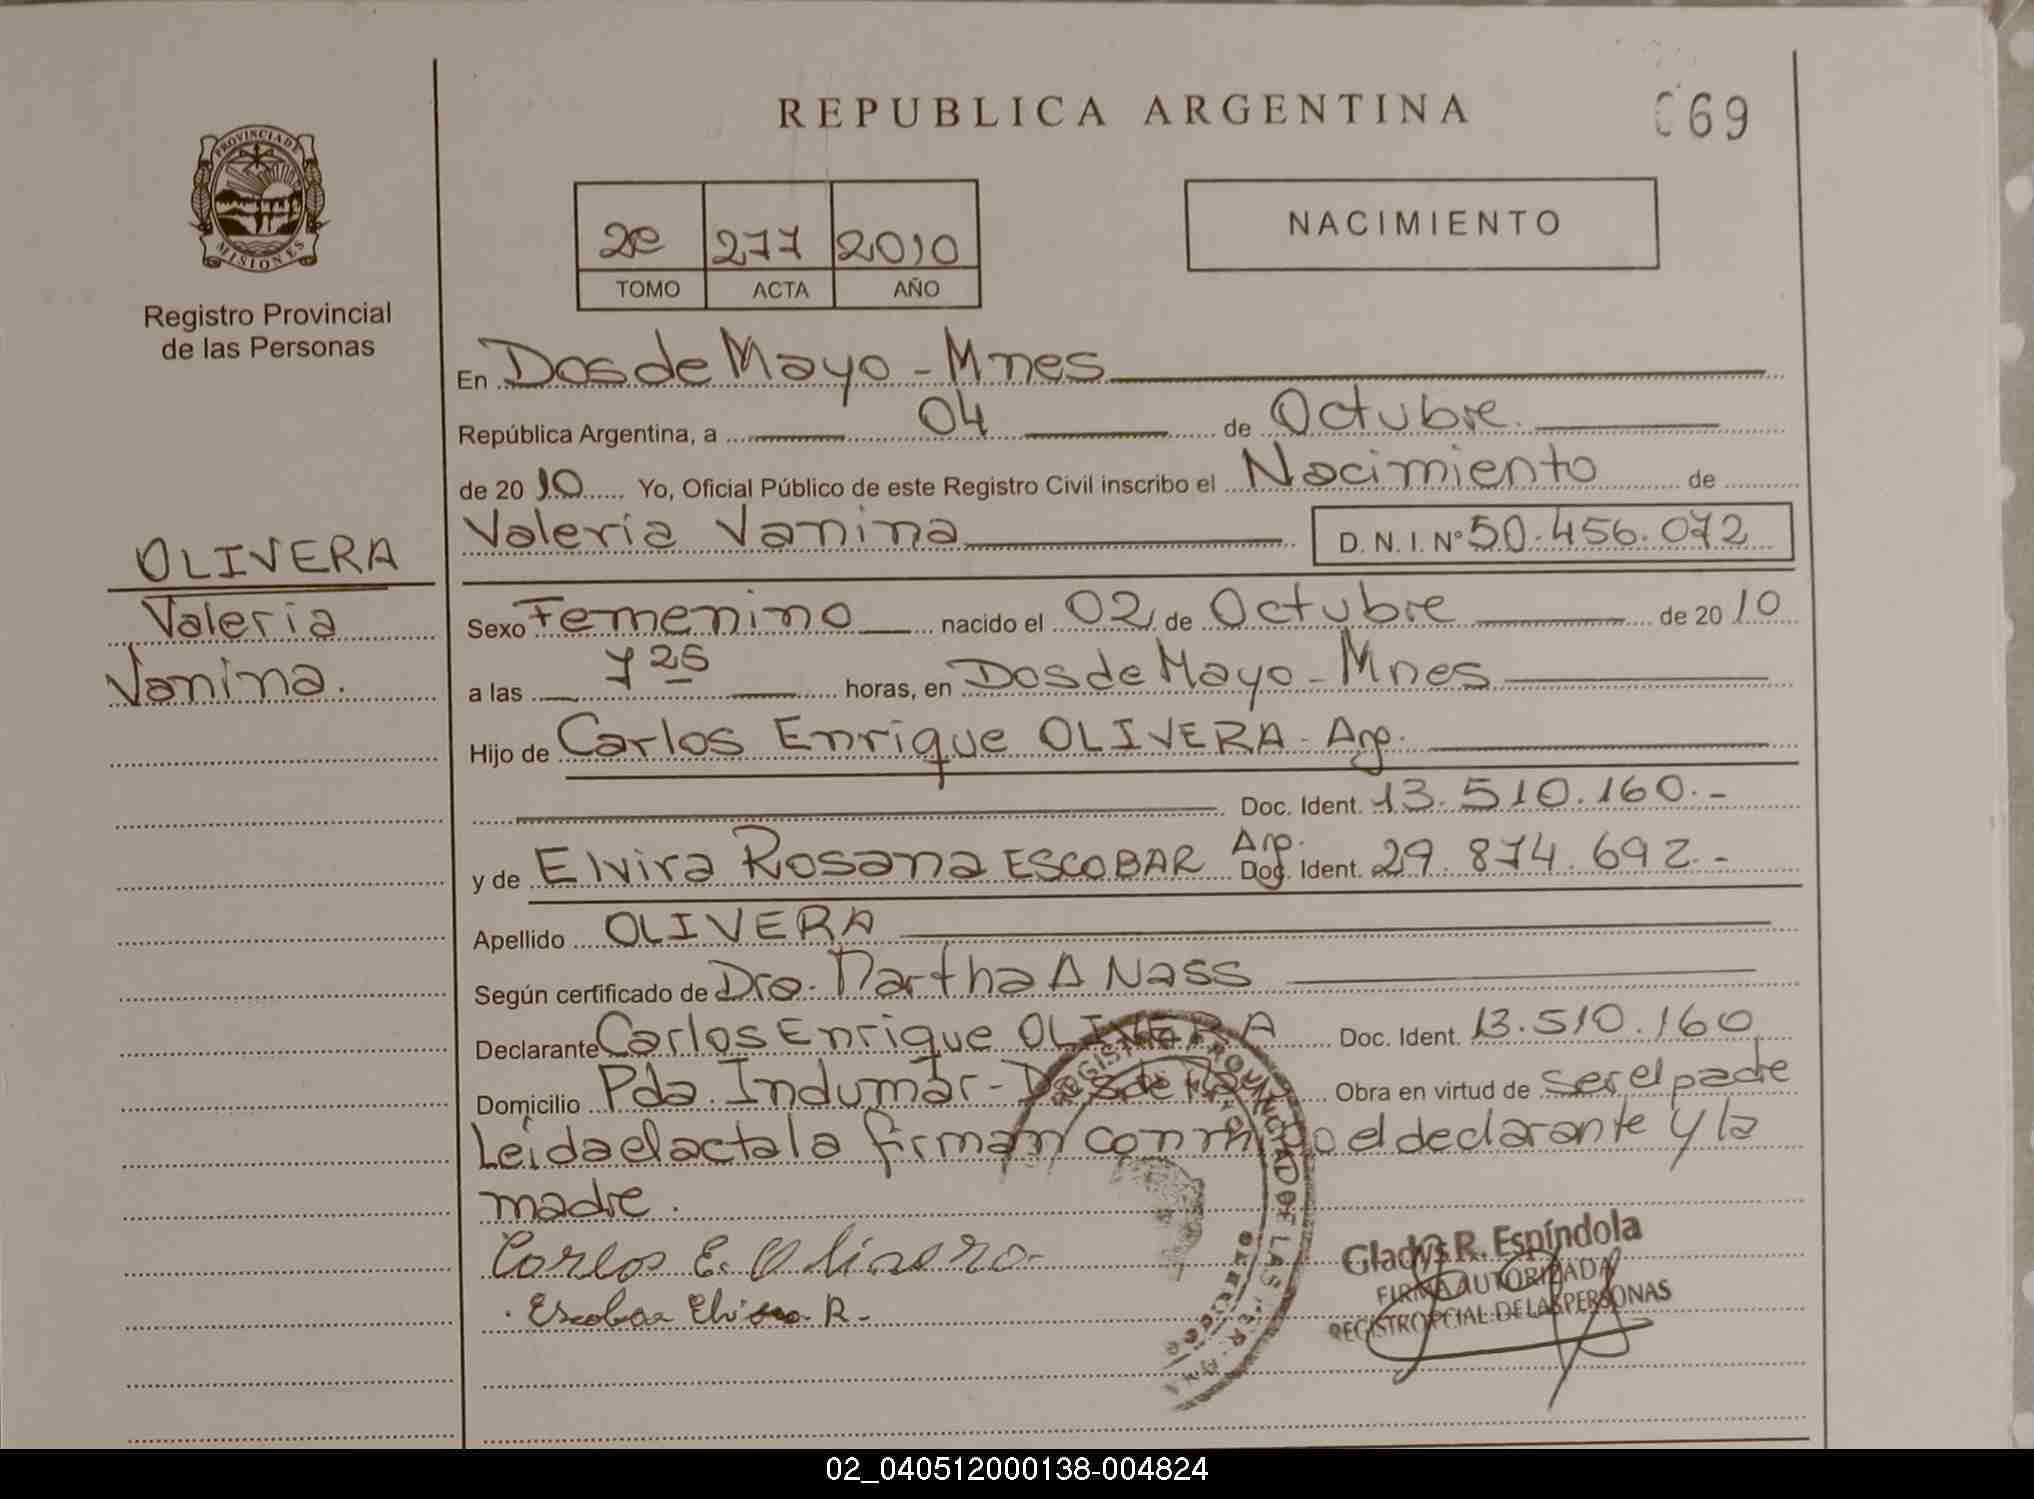 REPUBLICA ARGENTINA
69
PROVINCIA DE MISIONES
Registro Provincial
de las Personas
2e 277 2010
TOMO ACTA AÑO
NACIMIENTO
En Dos de Mayo - Mnes
República Argentina, a 04 de Octubre
de 2010 Yo, Oficial Público de este Registro Civil inscribo el Nacimiento de
Valeria Vanina D. N. I. Nº 50.456.072
OLIVERA
Valeria
Vanina.
Sexo Femenino nacido el 02 de Octubre de 2010
a las 7 25 horas, en Dos de Mayo - Mnes
Hijo de Carlos Enrique OLIVERA - Arg.
Doc. Ident. 13.510.160.-
y de Elvira Rosana ESCOBAR Arg. Doc. Ident. 29.874.692.-
Apellido OLIVERA
Según certificado de Dra. Martha A Nass
Declarante Carlos Enrique OLIVERA Doc. Ident. 13.510.160
Domicilio Pda. Indumar - Dos de Mayo Obra en virtud de ser el padre
Leida el acta la firman conmigo el declarante y la
madre.
Carlos E. Olivera
Escobar Elvira R.
Gladys R. Espíndola
FIRMA AUTORIZADA
REGISTRO PCIAL. DE LAS PERSONAS
REGISTRO PROVINCIAL DE LAS PER
02_040512000138-004824